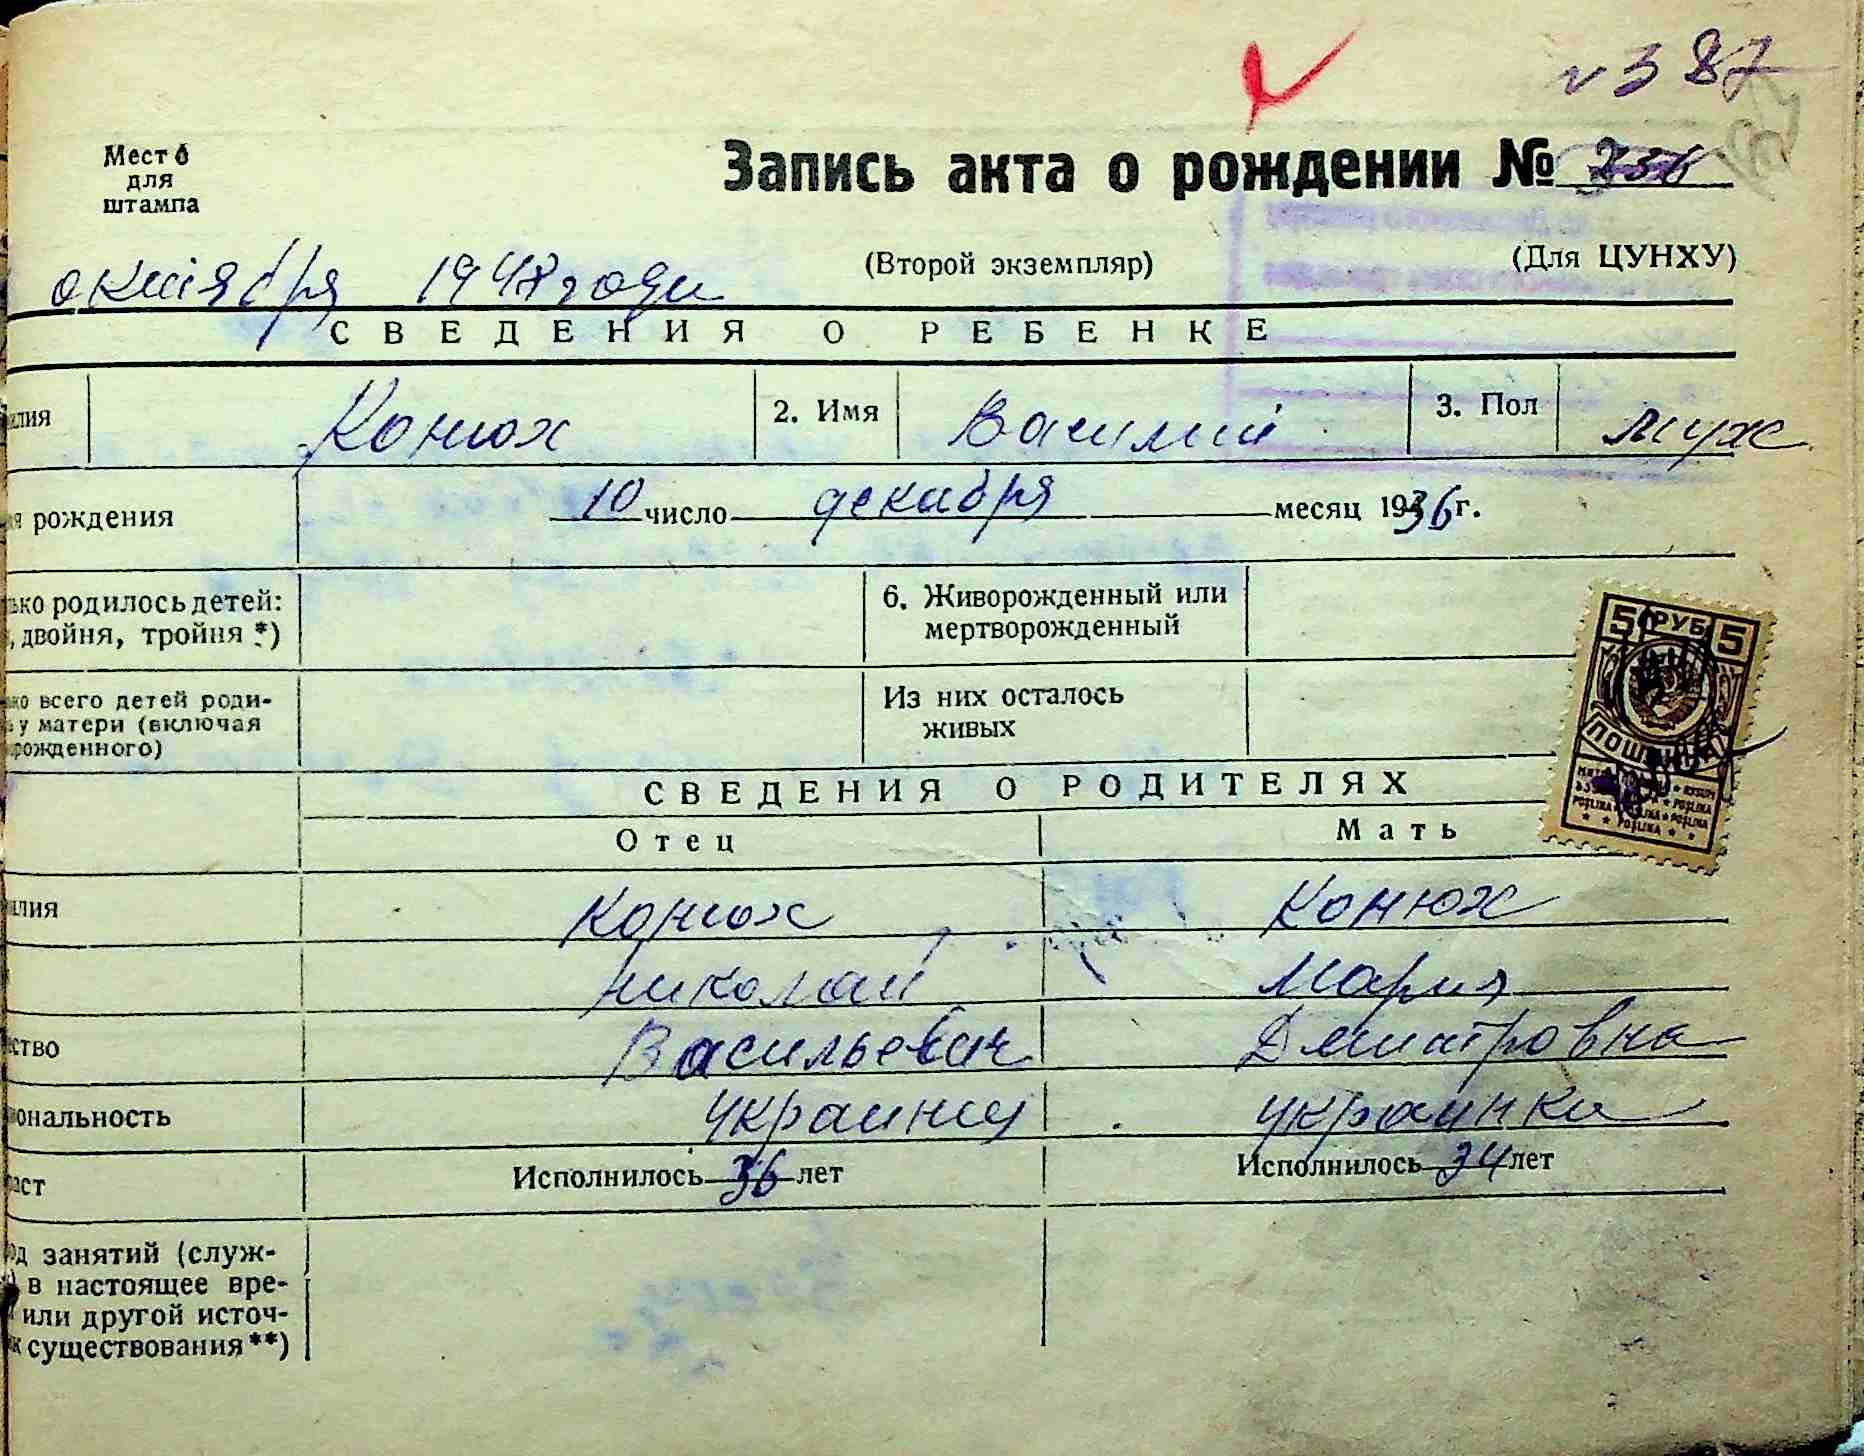 № 387
Место
для
штампа
Запись акта о рождении №
октября 1948 года
(Второй экземпляр)
(Для ЦУНХУ)
СВЕДЕНИЯ О РЕБЕНКЕ
илия Конюх 2. Имя Василий 3. Пол муж
мя рождения 10 число декабря месяц 1936 г.
ько родилось детей:
, двойня, тройня *)
6. Живорожденный или
мертворожденный
ко всего детей роди-
ь у матери (включая
рожденного)
Из них осталось
живых
5 РУБ 5
ПОШЛИНА
СВЕДЕНИЯ О РОДИТЕЛЯХ
Отец Мать
илия Конюх Конюх
Николай Мария
ство Васильевич Дмитровна
иональность украинец украинка
раст Исполнилось 36 лет Исполнилось 34 лет
од занятий (служ-
) в настоящее вре-
или другой источ-
к существования **)